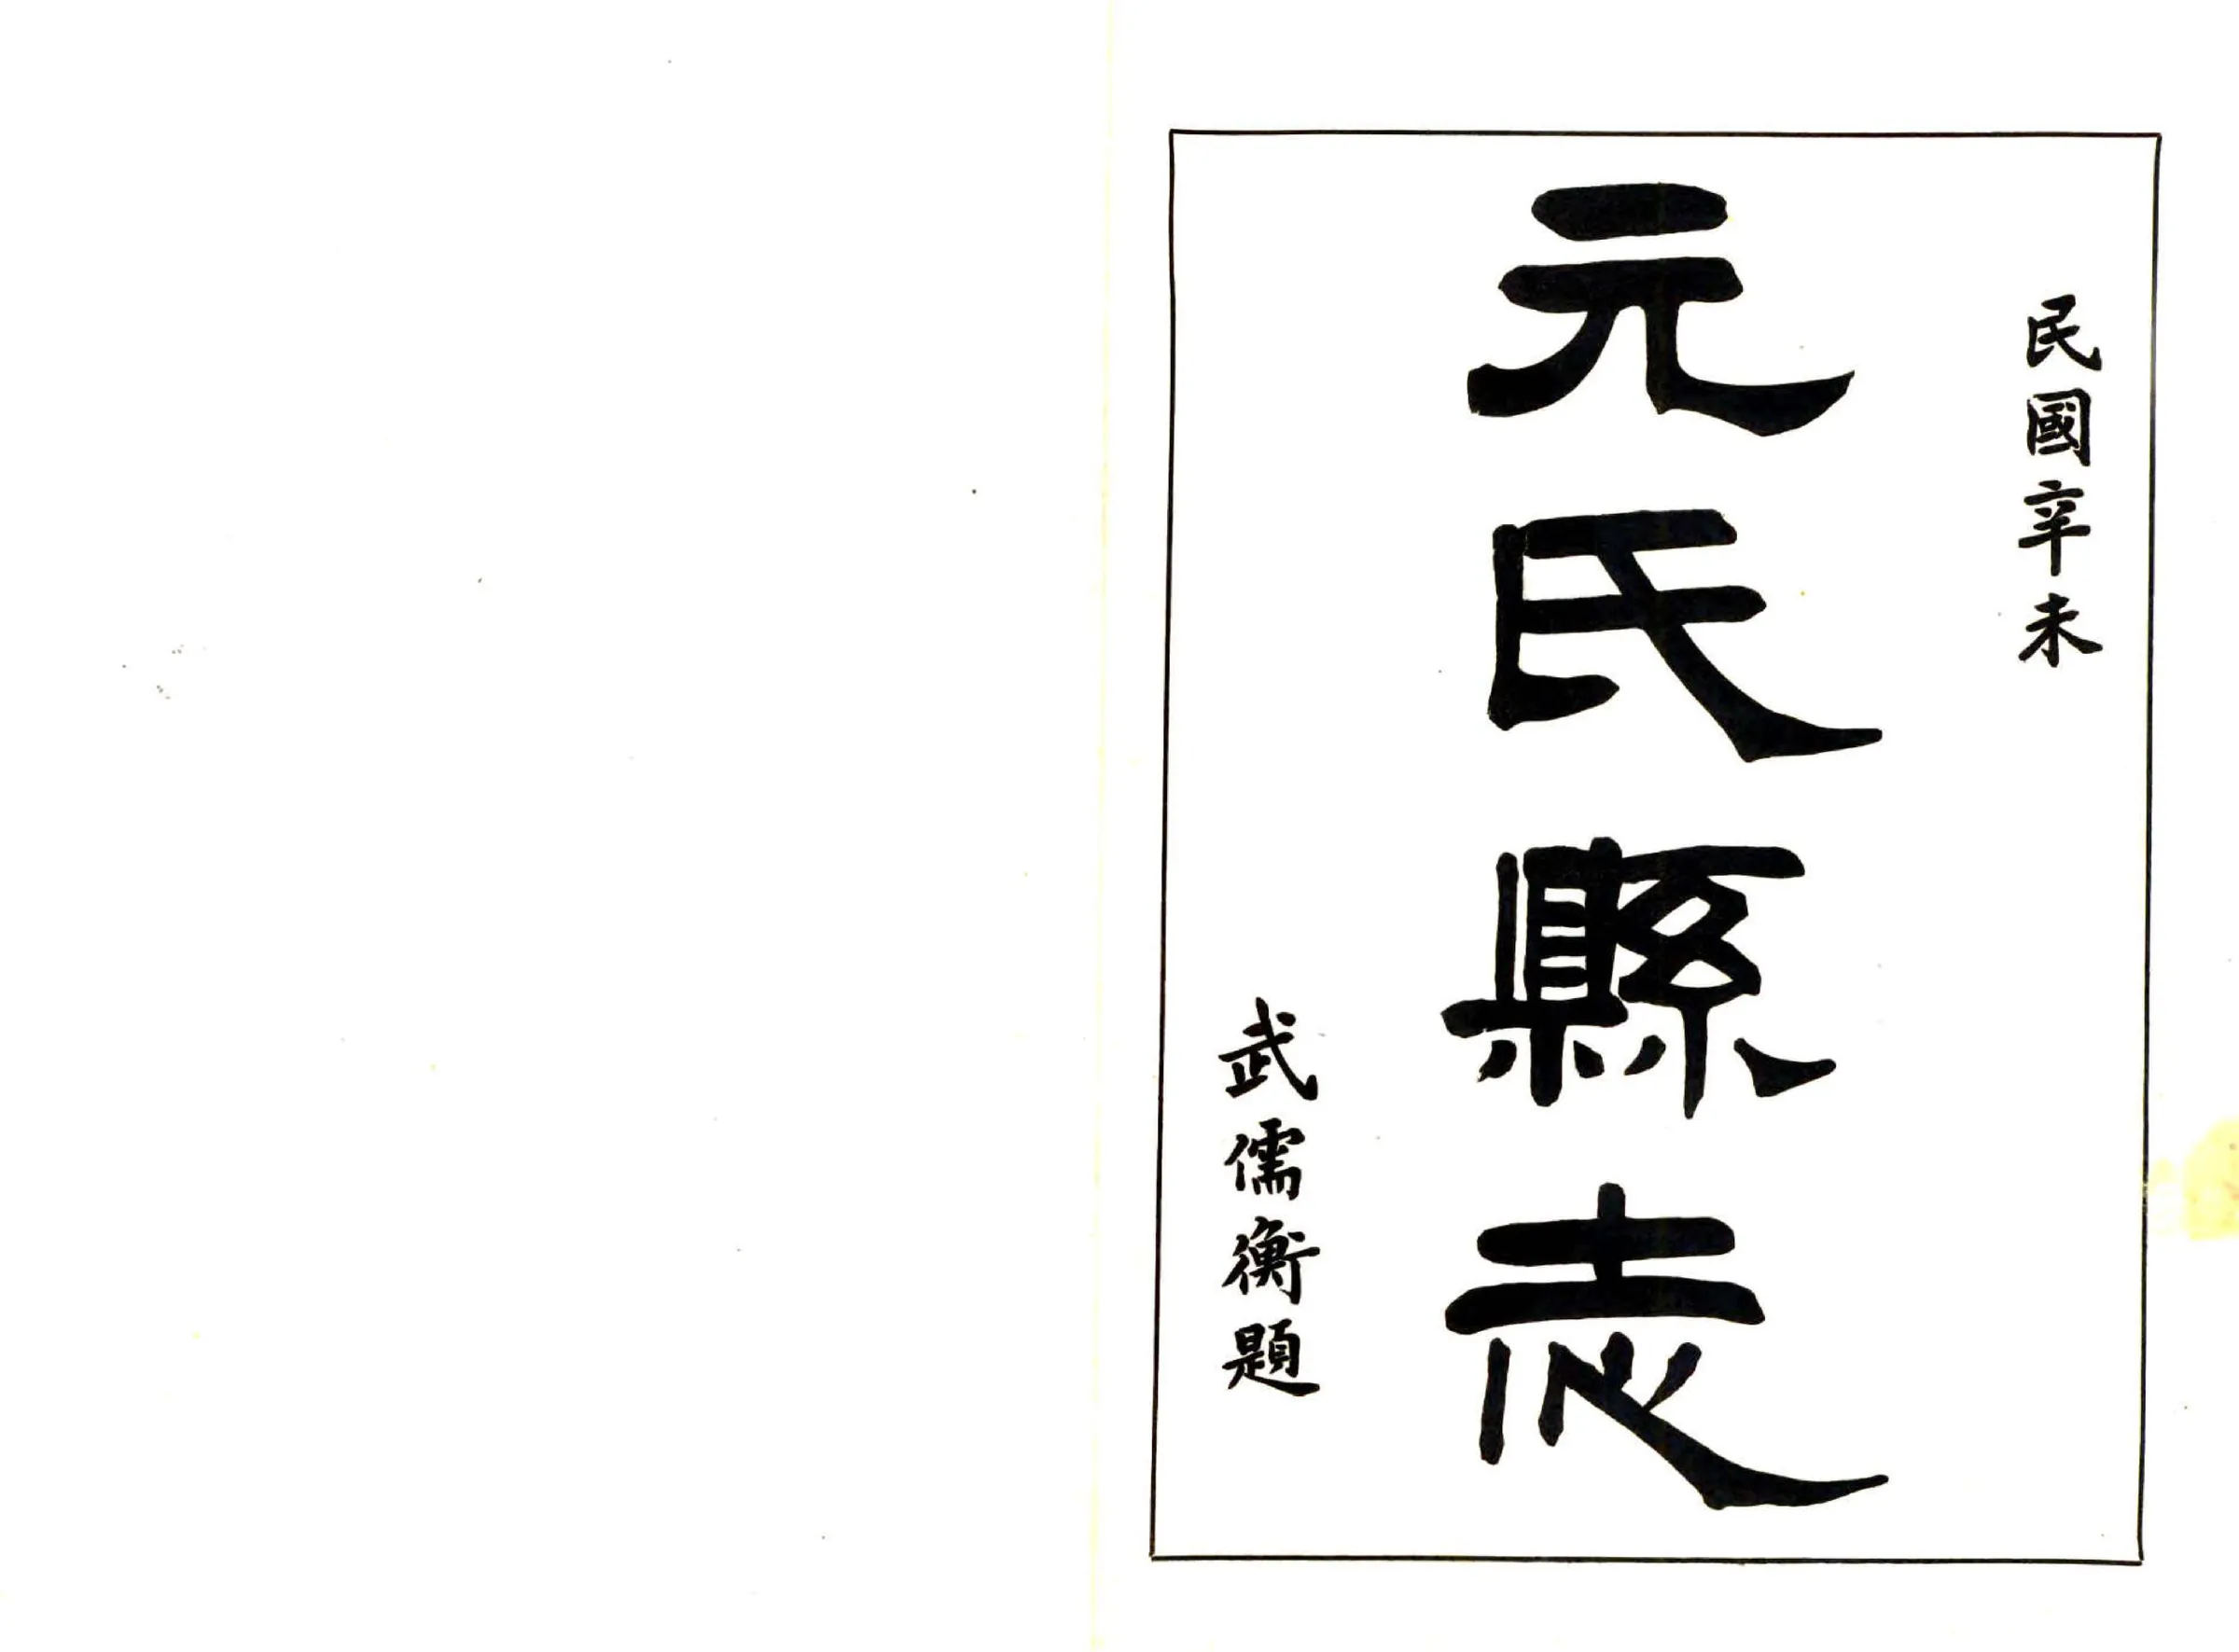 民國辛未
元氏縣志
武儒衡題